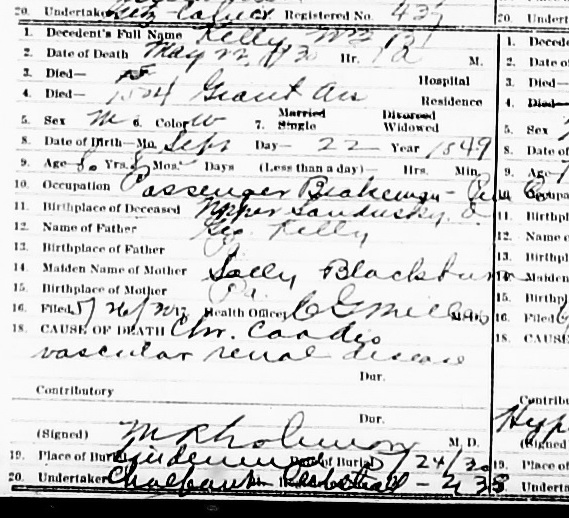 20. Undertaker Registered No. 437
1. Decedent's Full Name Kelly Wm
2. Date of Death May 22 1930 Hr. M.
3. Died— Hospital
4. Died— 1504 Grant Ave Residence
5. Sex M 6. Color W 7. Married Single Divorced Widowed
8. Date of Birth—Mo. Sept Day— 22 Year 1849
9. Age 80 Yrs. 8 Mos. Days (Less than a day) Hrs. Min.
10. Occupation Passenger Brakeman -
11. Birthplace of Deceased Upper Sandusky, O
12. Name of Father Geo Kelly
13. Birthplace of Father
14. Maiden Name of Mother Sally Blackburn
15. Birthplace of Mother Pa.
16. Filed 5/26/30 Health Officer C G Miller M.D.
18. CAUSE OF DEATH Chr. Cardio
vascular renal disease
Dur.
Contributory
Dur.
(Signed) M. D.
19. Place of Burial Lindenwood Date of Burial 5/24/30
20. Undertaker - 438
1. Decede
2. Date of
3. Died—
4. Died—
5. Sex
8. Date of
9. Age
10. Occupa
11. Birthpl
12. Name o
13. Birthpl
14. Maiden
15. Birthpl
16. Filed
18. CAUSE
Contribu
Hyp
(Signed
19. Place o
20. Undert